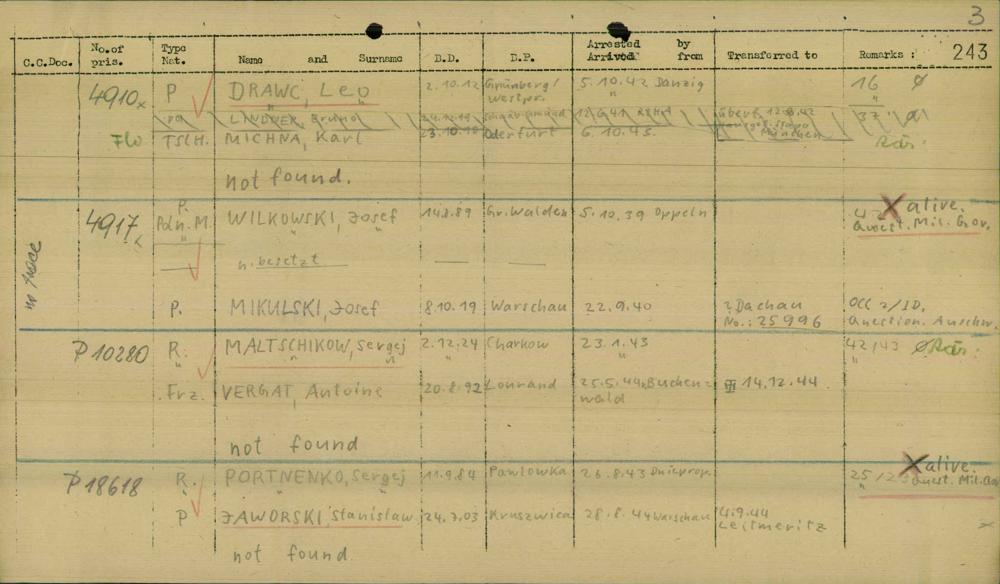 3
243
C.C.Doc. No.of pris. Type Nat. Name and Surname D.D. D.P. Arrested Arrived by from Transferred to Remarks :
4910 P DRAWC, Leo 2.10.12 Grünberg/ Westpr. 5.10.42 Danzig 16 ø
LINDNER, Bruno
Flo TSCH. MICHNA, Karl 23.10.18 Oderfurt 6.10.43.
not found.
4917 P. Poln.M. WILKOWSKI, Josef 14.8.89 Gr.Walden 5.10.39 Oppeln X alive. Quest. Mil. Gov.
no trace
n. besetzt
P. MIKULSKI, Josef 8.10.19 Warschau 22.9.40 ? Dachau No.: 25996 OCC 2/ID, Question. Auschw.
P 10280 R. MALTSCHIKOW, Sergej 2.12.24 Charkow 23.1.43 42/43 ø
Frz. VERGAT, Antoine 20.8.92 25.5.44 Buchenwald 14.12.44
not found
P 18618 R. PORTNENKO, Sergej 11.9.84 Pawlowka 26.8.43 Dnieprop. X alive. Quest. Mil. Gov.
P JAWORSKI Stanisław 24.7.03 Kruszwica 28.8.44 Warschau 4.9.44 Leitmeritz
not found